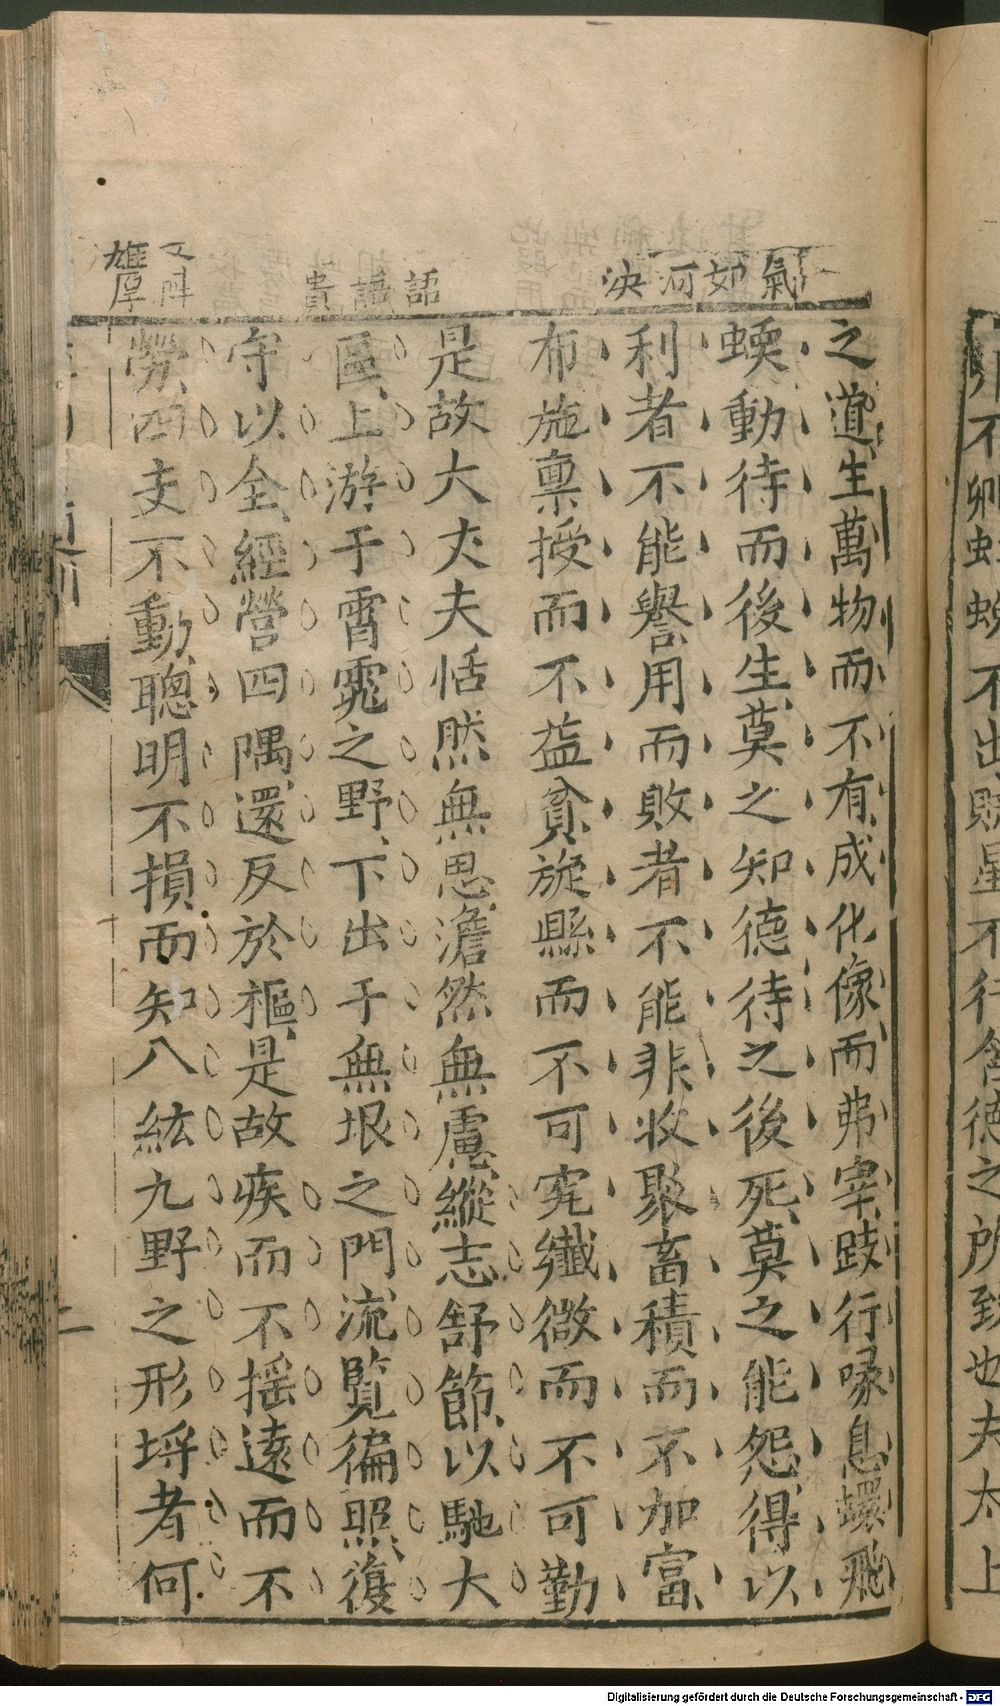 氣如河決
語語貴
之道生萬物而不有成化像而弗宰跂行喙息蠉飛
蝡動待而後生莫之知德待之後死莫之能怨得以
利者不能譽用而敗者不能非收聚畜積而不加富
布施禀授而不益貧旋縣而不可究纎微而不可勤
是故大丈夫恬然無思澹然無慮縱志舒節以馳大
區上游于霄雿之野下出于無垠之門流覽徧照復
守以全經營四隅還反於樞是故疾而不摇遠而不
勞四支不動聰明不損而知八紘九野之形埒者何
二
不卵
不出賊星不行含德之所致也夫太上
Digitalisierung gefördert durch die Deutsche Forschungsgemeinschaft - DFG